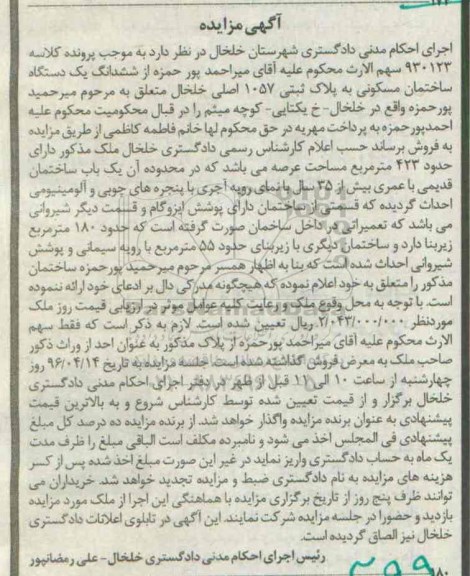 آگهی مزایده
اجرای احکام مدنی دادگستری شهرستان خلخال در نظر دارد به موجب پرونده کلاسه
۹۳۰۱۲۳ سهم الارث محکوم علیه آقای میراحمد پور حمزه از ششدانگ یک دستگاه
ساختمان مسکونی به پلاک ثبتی ۱۰۵۷ اصلی خلخال متعلق به مرحوم میرحمید
پورحمزه واقع در خلخال- خ یکتایی- کوچه میثم را در قبال محکومیت محکوم علیه
احمدپورحمزه به پرداخت مهریه در حق محکوم لها خانم فاطمه کاظمی از طریق مزایده
به فروش برساند حسب اعلام کارشناس رسمی دادگستری خلخال ملک مذکور دارای
حدود ۴۲۳ مترمربع مساحت عرصه می باشد که در محدوده آن یک باب ساختمان
قدیمی با عمری بیش از ۳۵ سال با نمای رویه آجری با پنجره های چوبی و آلومینیومی
احداث گردیده که قسمتی از ساختمان دارای پوشش ایزوگام و قسمت دیگر شیروانی
می باشد که تعمیراتی در داخل ساختمان صورت گرفته است که حدود ۱۸۰ مترمربع
زیربنا دارد و ساختمان دیگری با زیربنای حدود ۵۵ مترمربع با رویه سیمانی و پوشش
شیروانی احداث شده است که بنا به اظهار همسر مرحوم میرحمید پورحمزه ساختمان
مذکور را متعلق به خود اعلام نموده که هیچگونه مدرکی دال بر ادعای خود ارائه ننموده
است. با توجه به محل وقوع ملک و رعایت کلیه عوامل موثر در ارزیابی قیمت روز ملک
موردنظر ۲/۰۴۳/۰۰۰/۰۰۰ ریال تعیین شده است. لازم به ذکر است که فقط سهم
الارث محکوم علیه آقای میراحمد پورحمزه از پلاک مذکور به عنوان احد از وراث ذکور
صاحب ملک به معرض فروش گذاشته شده است. جلسه مزایده به تاریخ ۹۶/۰۴/۱۴ روز
چهارشنبه از ساعت ۱۰ الی ۱۱ قبل از ظهر در دفتر اجرای احکام مدنی دادگستری
خلخال برگزار و از قیمت تعیین شده توسط کارشناس شروع و به بالاترین قیمت
پیشنهادی به عنوان برنده مزایده واگذار خواهد شد. از برنده مزایده ده درصد کل مبلغ
پیشنهادی فی المجلس اخذ می شود و نامبرده مکلف است الباقی مبلغ را ظرف مدت
یک ماه به حساب دادگستری واریز نماید در غیر این صورت مبلغ اخذ شده پس از کسر
هزینه های مزایده به نام دادگستری ضبط و مزایده تجدید خواهد شد. خریداران می
توانند ظرف پنج روز از تاریخ برگزاری مزایده با هماهنگی این اجرا از ملک مورد مزایده
بازدید و حضورا در جلسه مزایده شرکت نمایند. این آگهی در تابلوی اعلانات دادگستری
خلخال نیز الصاق گردیده است.
رئیس اجرای احکام مدنی دادگستری خلخال- علی رمضانپور
۲۹۹
۱۸۰